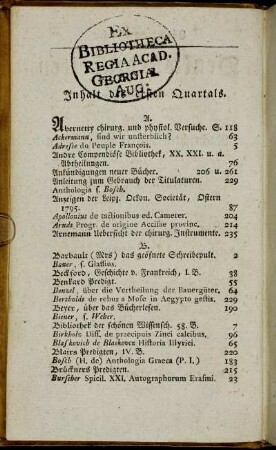 EX
BIBLIOTHECA
REGIA ACAD.
GEORGIÆ
AUG.
Inhalt des ersten Quartals.
A.
Abernetry chirurg. und physiol. Versuche. S. 118
Ackermann, sind wir unsterblich? 63
Adresse du Peuple François. 5
Andre Compendiöse Bibliothek, XX. XXI. u. a.
Abtheilungen. 76
Ankündigungen neuer Bücher. 206 u. 261
Anleitung zum Gebrauch der Titulaturen. 229
Anthologia s. Bosch.
Anzeigen der Leipz. Oekon. Societät, Ostern
1795. 87
Apollonius de tactionibus ed. Camerer. 204
Arndt Progr. de origine Aeciliae provinc. 214
Arnemann Uebersicht der chirurg. Instrumente. 235
B.
Barbault (Mrs) das geöfnete Schreibepult. 2
Bauer, s. Glassius.
Beckford, Geschichte v. Frankreich, I. B. 38
Benkard Predigt. 55
Benzel, über die Vertheilung der Bauergüter. 64
Bertholdi de rebus a Mose in Aegypto gestis. 229
Beyer, über das Bücherlesen. 190
Biener, s. Weber.
Bibliothek der schönen Wissensch. 58. B. 7
Birkholz Diss. de praecipuis Zinci calcibus, 96
Blaskovich de Blaskovec Historia Illyrici. 65
Blairs Predigten, IV. B. 220
Bosch (H. de) Anthologia Graeca (P. I.) 183
Brückners Predigten. 215
Burscher Spicil. XXI. Autographorum Erasmi. 23